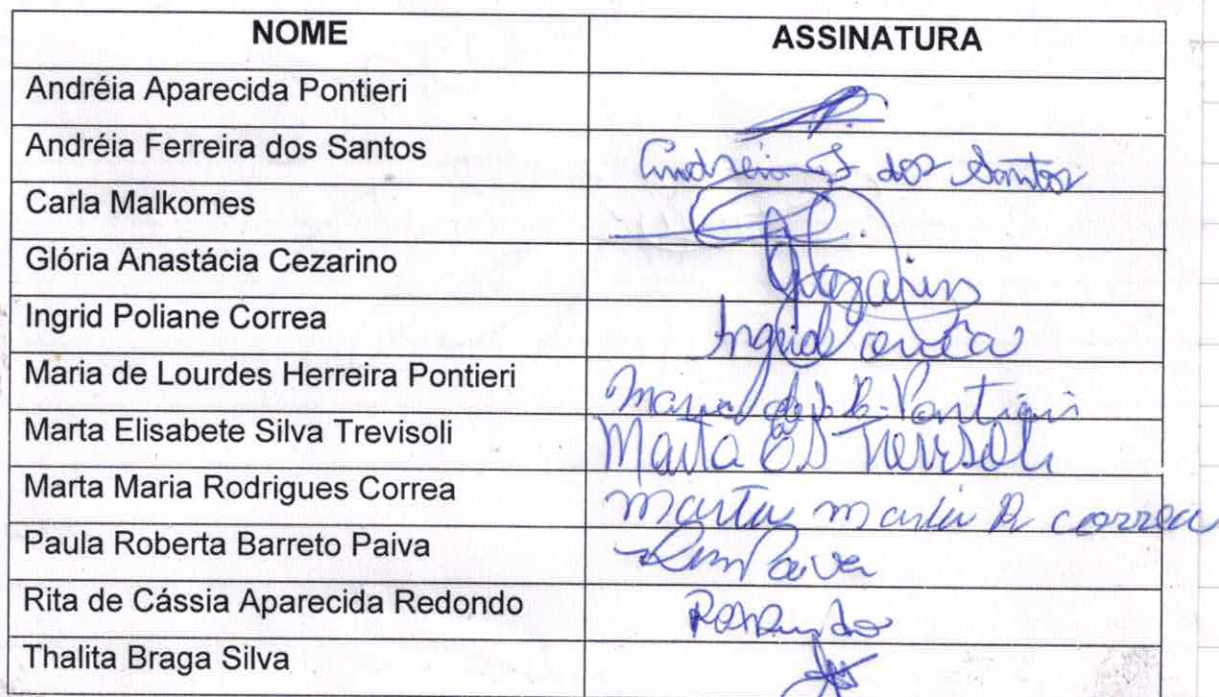 NOME ASSINATURA
Andréia Aparecida Pontieri
Andréia Ferreira dos Santos Andreia F dos Santos
Carla Malkomes
Glória Anastácia Cezarino
Ingrid Poliane Correa Ingrid Correa
Maria de Lourdes Herreira Pontieri Maria Pontieri
Marta Elisabete Silva Trevisoli Marta E S Trevisoli
Marta Maria Rodrigues Correa Marta Maria R Correa
Paula Roberta Barreto Paiva Paiva
Rita de Cássia Aparecida Redondo
Thalita Braga Silva